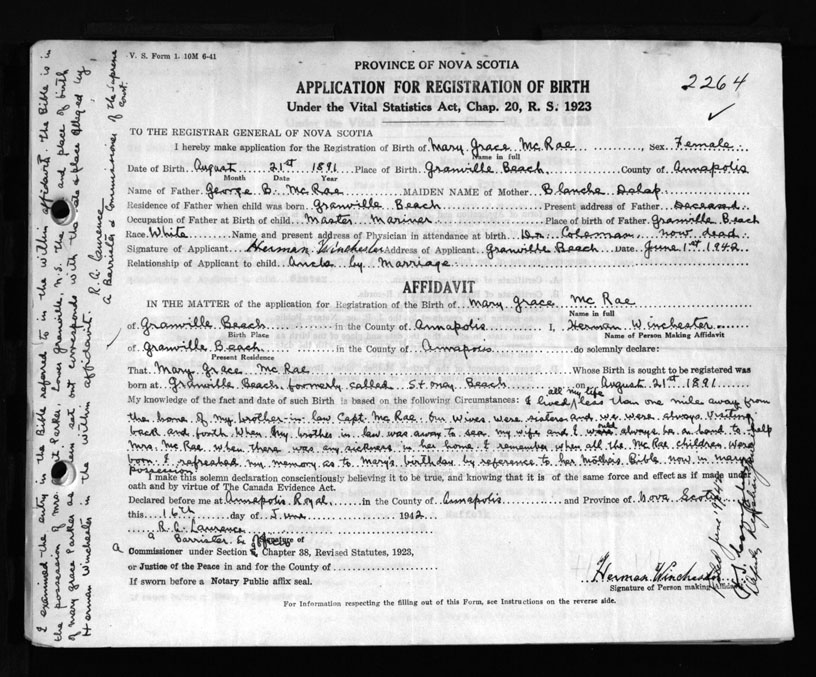 V. S. Form 1. 10M 6-41
PROVINCE OF NOVA SCOTIA
2264
APPLICATION FOR REGISTRATION OF BIRTH
Under the Vital Statistics Act, Chap. 20, R. S. 1923
TO THE REGISTRAR GENERAL OF NOVA SCOTIA
I hereby make application for the Registration of Birth of Mary Grace McRae, Sex Female
Name in full
Date of Birth August 21st 1891 Place of Birth Granville Beach County of Annapolis
Month Date Year
Name of Father George B. McRae MAIDEN NAME of Mother Blanche Delap
Residence of Father when child was born Granville Beach Present address of Father Deceased
Occupation of Father at Birth of child Master Mariner Place of birth of Father Granville Beach
Race White Name and present address of Physician in attendance at birth Dr. Coleman now dead
Signature of Applicant Herman Winchester Address of Applicant Granville Beach Date June 1st 1942
Relationship of Applicant to child Uncle by Marriage
AFFIDAVIT
IN THE MATTER of the application for Registration of the Birth of Mary Grace McRae
Name in full
of Granville Beach in the County of Annapolis I, Herman Winchester
Birth Place Name of Person Making Affidavit
of Granville Beach in the County of Annapolis do solemnly declare:
Present Residence
That Mary Grace McRae Whose Birth is sought to be registered was
born at Granville Beach formerly called Beach on August 21st 1891
My knowledge of the fact and date of such Birth is based on the following Circumstances: I lived all my life less than one mile away from
the home of my brother-in-law Capt. McRae. Our wives were sisters and we were always visiting
back and forth. When my brother in law was away to sea my wife and I would always be on hand to help
Mrs. McRae when there was any sickness in her home. I remember when all the McRae children were
born. I refreshed my memory as to Mary's birthday by reference to her mother's Bible now in Mary's
possession
I make this solemn declaration conscientiously believing it to be true, and knowing that it is of the same force and effect as if made under
oath and by virtue of The Canada Evidence Act.
Declared before me at Annapolis Royal in the County of Annapolis and Province of Nova Scotia
this 16th day of June 1942
R. C. Laurence
a Barrister &c
Signature of
a Commissioner under Section Chapter 38, Revised Statutes, 1923,
or Justice of the Peace in and for the County of
If sworn before a Notary Public affix seal.
Herman Winchester
Signature of Person making Affidavit
For Information respecting the filling out of this Form, see Instructions on the reverse side.
I examined the entry in the Bible referred to in the within affidavit. The Bible is in
the possession of Mrs. Parker, Lower Granville, N.S. The date and place of birth
of Mary Grace Parker as therein set out corresponds with the date & place alleged by
Herman Winchester in the within affidavit.
R. C. Laurence
a Barrister & Commissioner of the Supreme
Court.
June 1942
Deputy Registrar